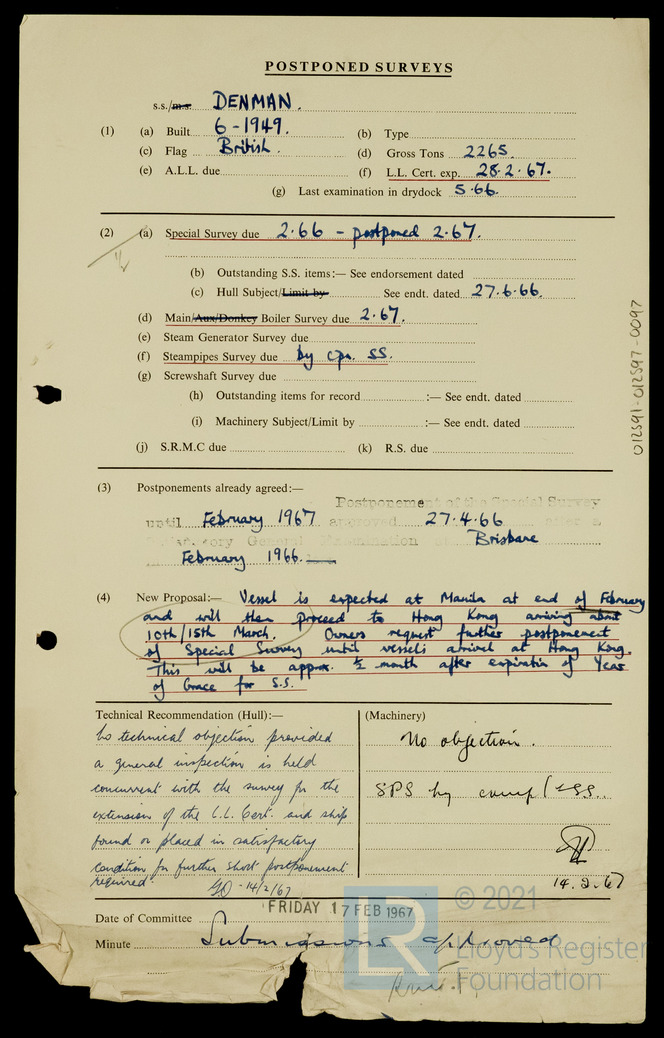 POSTPONED SURVEYS
s.s./m.s. DENMAN.
(1) (a) Built 6-1949. (b) Type
(c) Flag British. (d) Gross Tons 2265.
(e) A.L.L. due (f) L.L. Cert. exp. 28.2.67.
(g) Last examination in drydock 5.66.
(2) (a) Special Survey due 2.66 - postponed 2.67.
(b) Outstanding S.S. items:— See endorsement dated
(c) Hull Subject/Limit by See endt. dated 27.6.66.
(d) Main/Aux/Donkey Boiler Survey due 2.67.
(e) Steam Generator Survey due
(f) Steampipes Survey due by cpn. SS.
(g) Screwshaft Survey due
(h) Outstanding items for record :— See endt. dated
(i) Machinery Subject/Limit by :— See endt. dated
(j) S.R.M.C due (k) R.S. due
012591-012597-0097
(3) Postponements already agreed:—
Postponement of the Special Survey
until February 1967 approved 27.4.66 after a
General Examination at Brisbane
February 1966.
(4) New Proposal:— Vessel is expected at Manila at end of February
and will then proceed to Hong Kong arriving about
10th/15th March. Owners request further postponement
of Special Survey until vessels arrival at Hong Kong.
This will be approx. ½ month after expiration of Year
of Grace for S.S.
Technical Recommendation (Hull):—
No technical objection provided
a general inspection is held
concurrent with the survey for the
extension of the L.L. Cert. and ship
found or placed in satisfactory
condition for further short postponement
required.
14/2/67
(Machinery)
No objection.
SPS by comp/
14.2.67
Date of Committee FRIDAY 17 FEB 1967
Minute Submissions approved
LR
© 2021
Lloyd's Register
Foundation